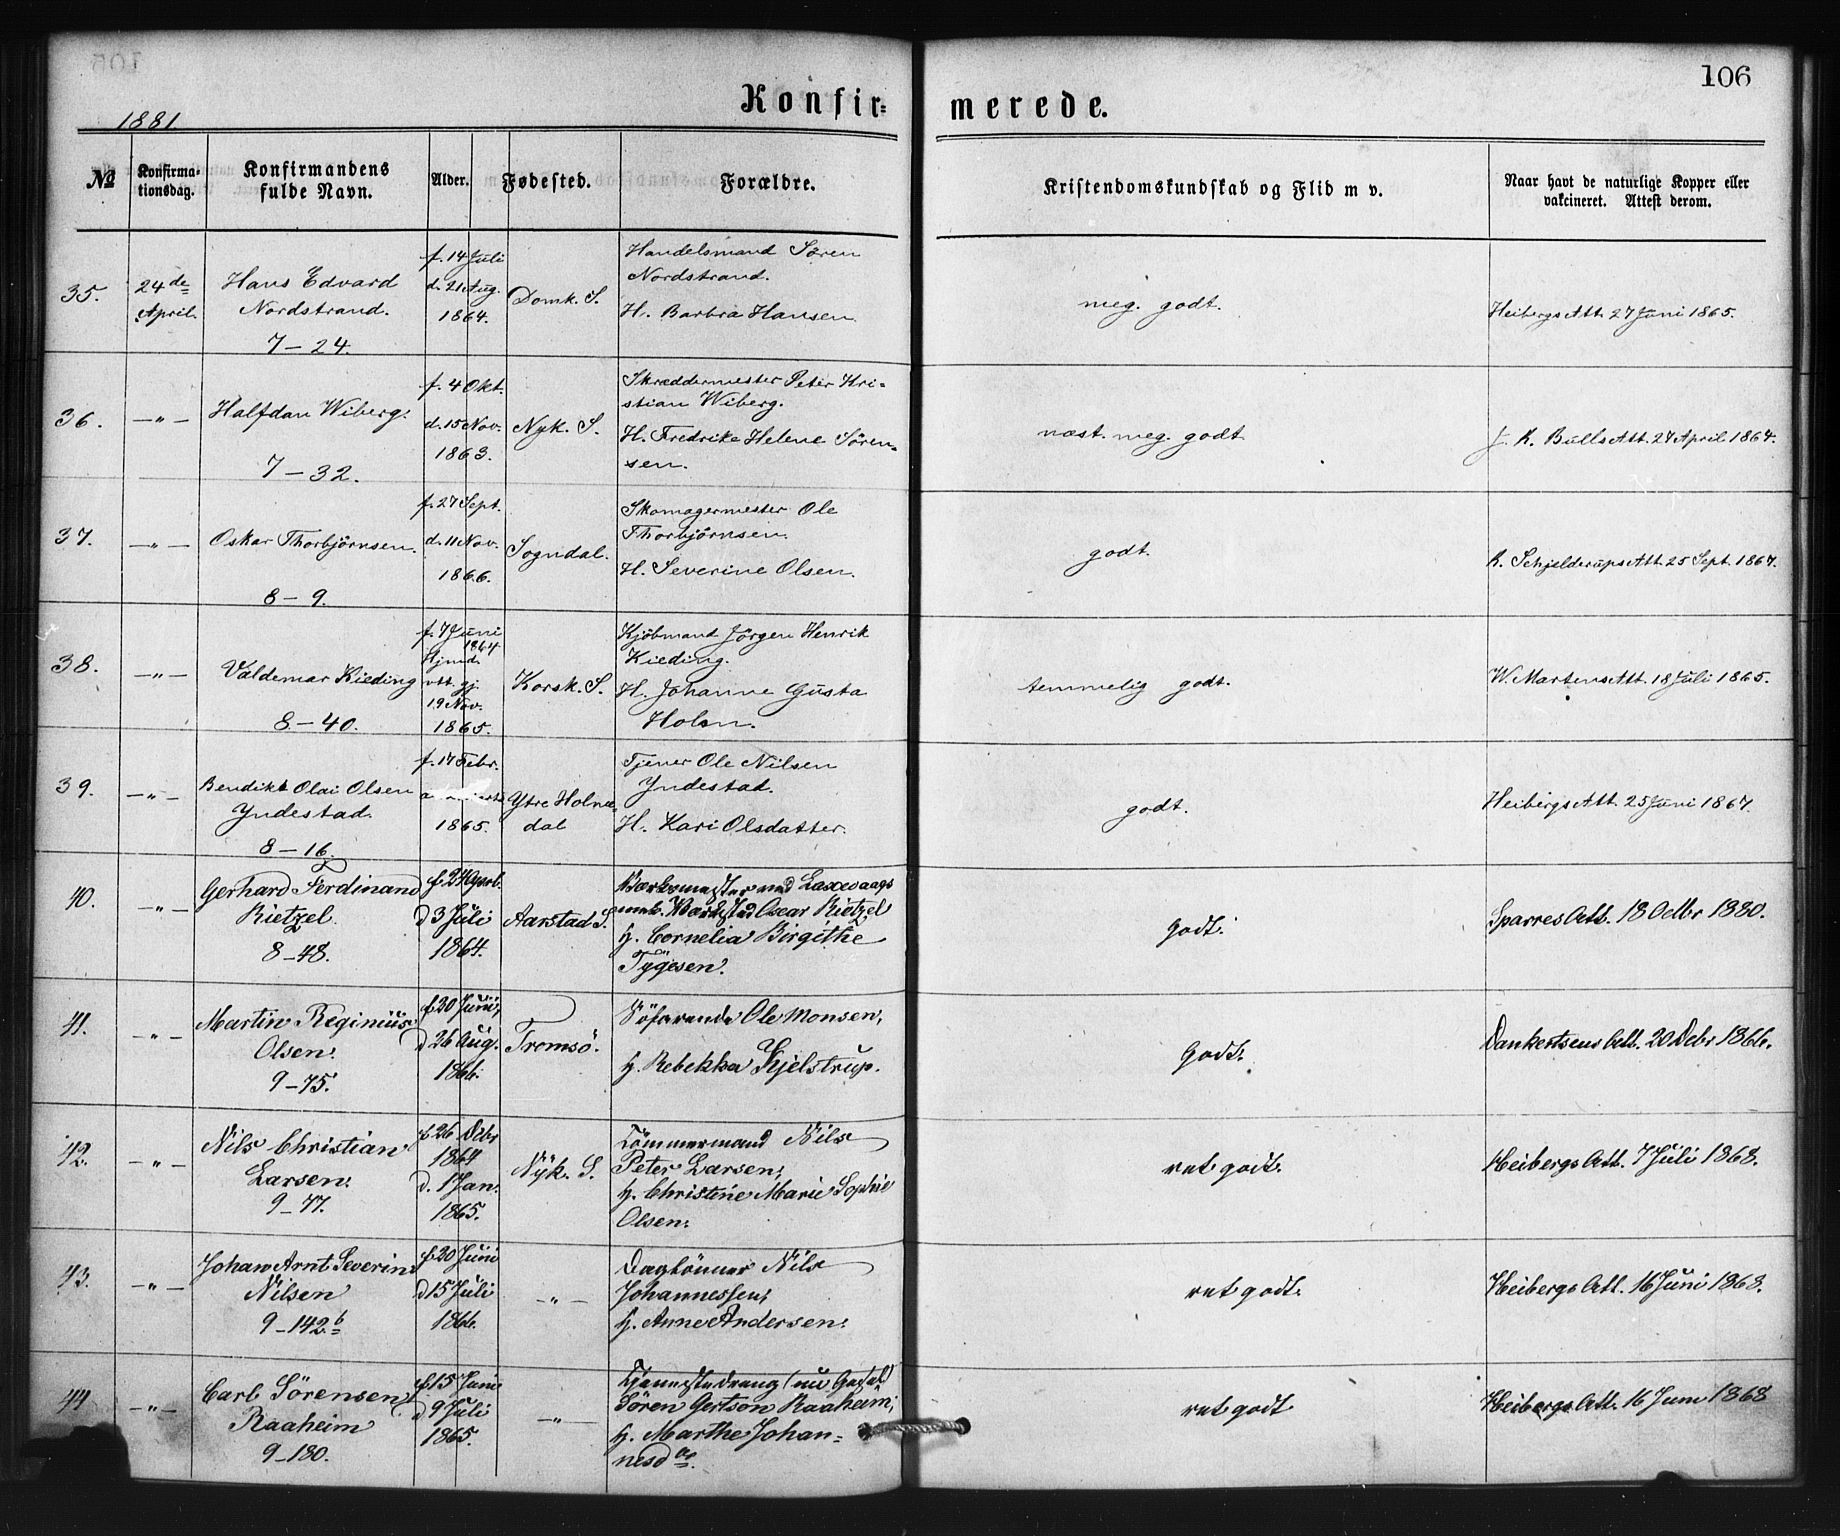 106
1881.
Konfir=
merede.
No
Konfirma-
tionsdag.
Konfirmandens
fulde Navn.
Alder.
Fødested.
Forældre.
Kristendomskundskab og Flid m v.
Naar havt de naturlige Kopper eller
vakcineret. Attest derom.
35.
24de
April.
Hans Edvard
Nordstrand.
7-24.
f. 14 Juli
d. 21 Aug.
1864.
Domk. S.
Handelsmand Sören
Nordstrand.
H. Barbra Hansen.
meg. godt.
Heibergs Att. 27 Juni 1865.
36.
-"-
Halfdan Wiberg.
7-32.
f. 4 Okt.
d. 15 Nov.
1863.
Nyk. S.
Skræddermester Peter Kri-
stian Wiberg.
H. Fredrike Helene Sören-
sen.
næst. meg. godt
J. K. Bulls Att. 27 April 1864.
37.
-"-
Oskar Thorbjörnsen.
8-9.
f. 27 Sept.
d. 11 Nov.
1866.
Sogndal.
Skomagermester Ole
Thorbjörnsen.
H. Severine Olsen.
godt.
K. Schjelderups Att. 25 Sept. 1867.
38.
-"-
Valdemar Kieding
8-40.
f. 7 Juni
1864
Hjmd.
vtt. gj.
19 Nov.
1865.
Korsk. S.
Kjöbmand Jörgen Henrik
Kieding.
H. Johanne Gusta
Holm.
temmelig godt.
W. Martens Att. 18 Juli 1865.
39.
-"-
Bendikt Olai Olsen
Yndestad.
8-16.
f. 17 Febr.
1865.
Ytre Holme-
dal
Tjener Ole Nilsen
Yndestad.
H. Kari Olsdatter.
godt.
Heibergs Att. 25 Juni 1867.
40.
-"-
Gerhard Ferdinand
Rietzel.
8-48.
f. 24 April.
d 3 Juli
1864.
Aarstad S.
Værksmester ved Laxevaags
mek. Værksted Oscar Rietzel
H. Cornelia Birgithe
Tygesen.
Godt.
Sparres Att. 18 Octbr 1880.
41.
-"-
Martin Reginius
Olsen.
9-75.
f. 30 Juni,
d 26 Aug.
1866.
Tromsö.
Söfarende Ole Monsen,
H. Rebekka Kjelstrup.
Godt.
Dankertsens Att. 20 Debr 1866.
42.
-"-
Nils Christian
Larsen.
9-77.
f 26 Debr
1864
d. 1 Jan.
1865.
Nyk. S.
Tömmermand Nils
Peter Larsen,
H. Christine Marie Sophie
Olsen.
ret godt.
Heibergs Att. 7 Juli 1868.
43.
-"-
Johan Arnt Severin
Nilsen
9-142b
f 20 Juni
d 15 Juli
1866.
-"-
Daglönner Nils
Johannessen,
H. Anne Andersen.
ret godt.
Heibergs Att. 16 Juni 1868.
44
-"-
Carl Sörensen
Raaheim
9-180.
f 15 Juni
d 9 Juli
1865.
-"-
Tjenestedreng (nu Gasel)
Sören Gertson Raaheim,
H. Marthe Johan=
nesdtr.
ret godt
Heibergs Att. 16 Juni 1868